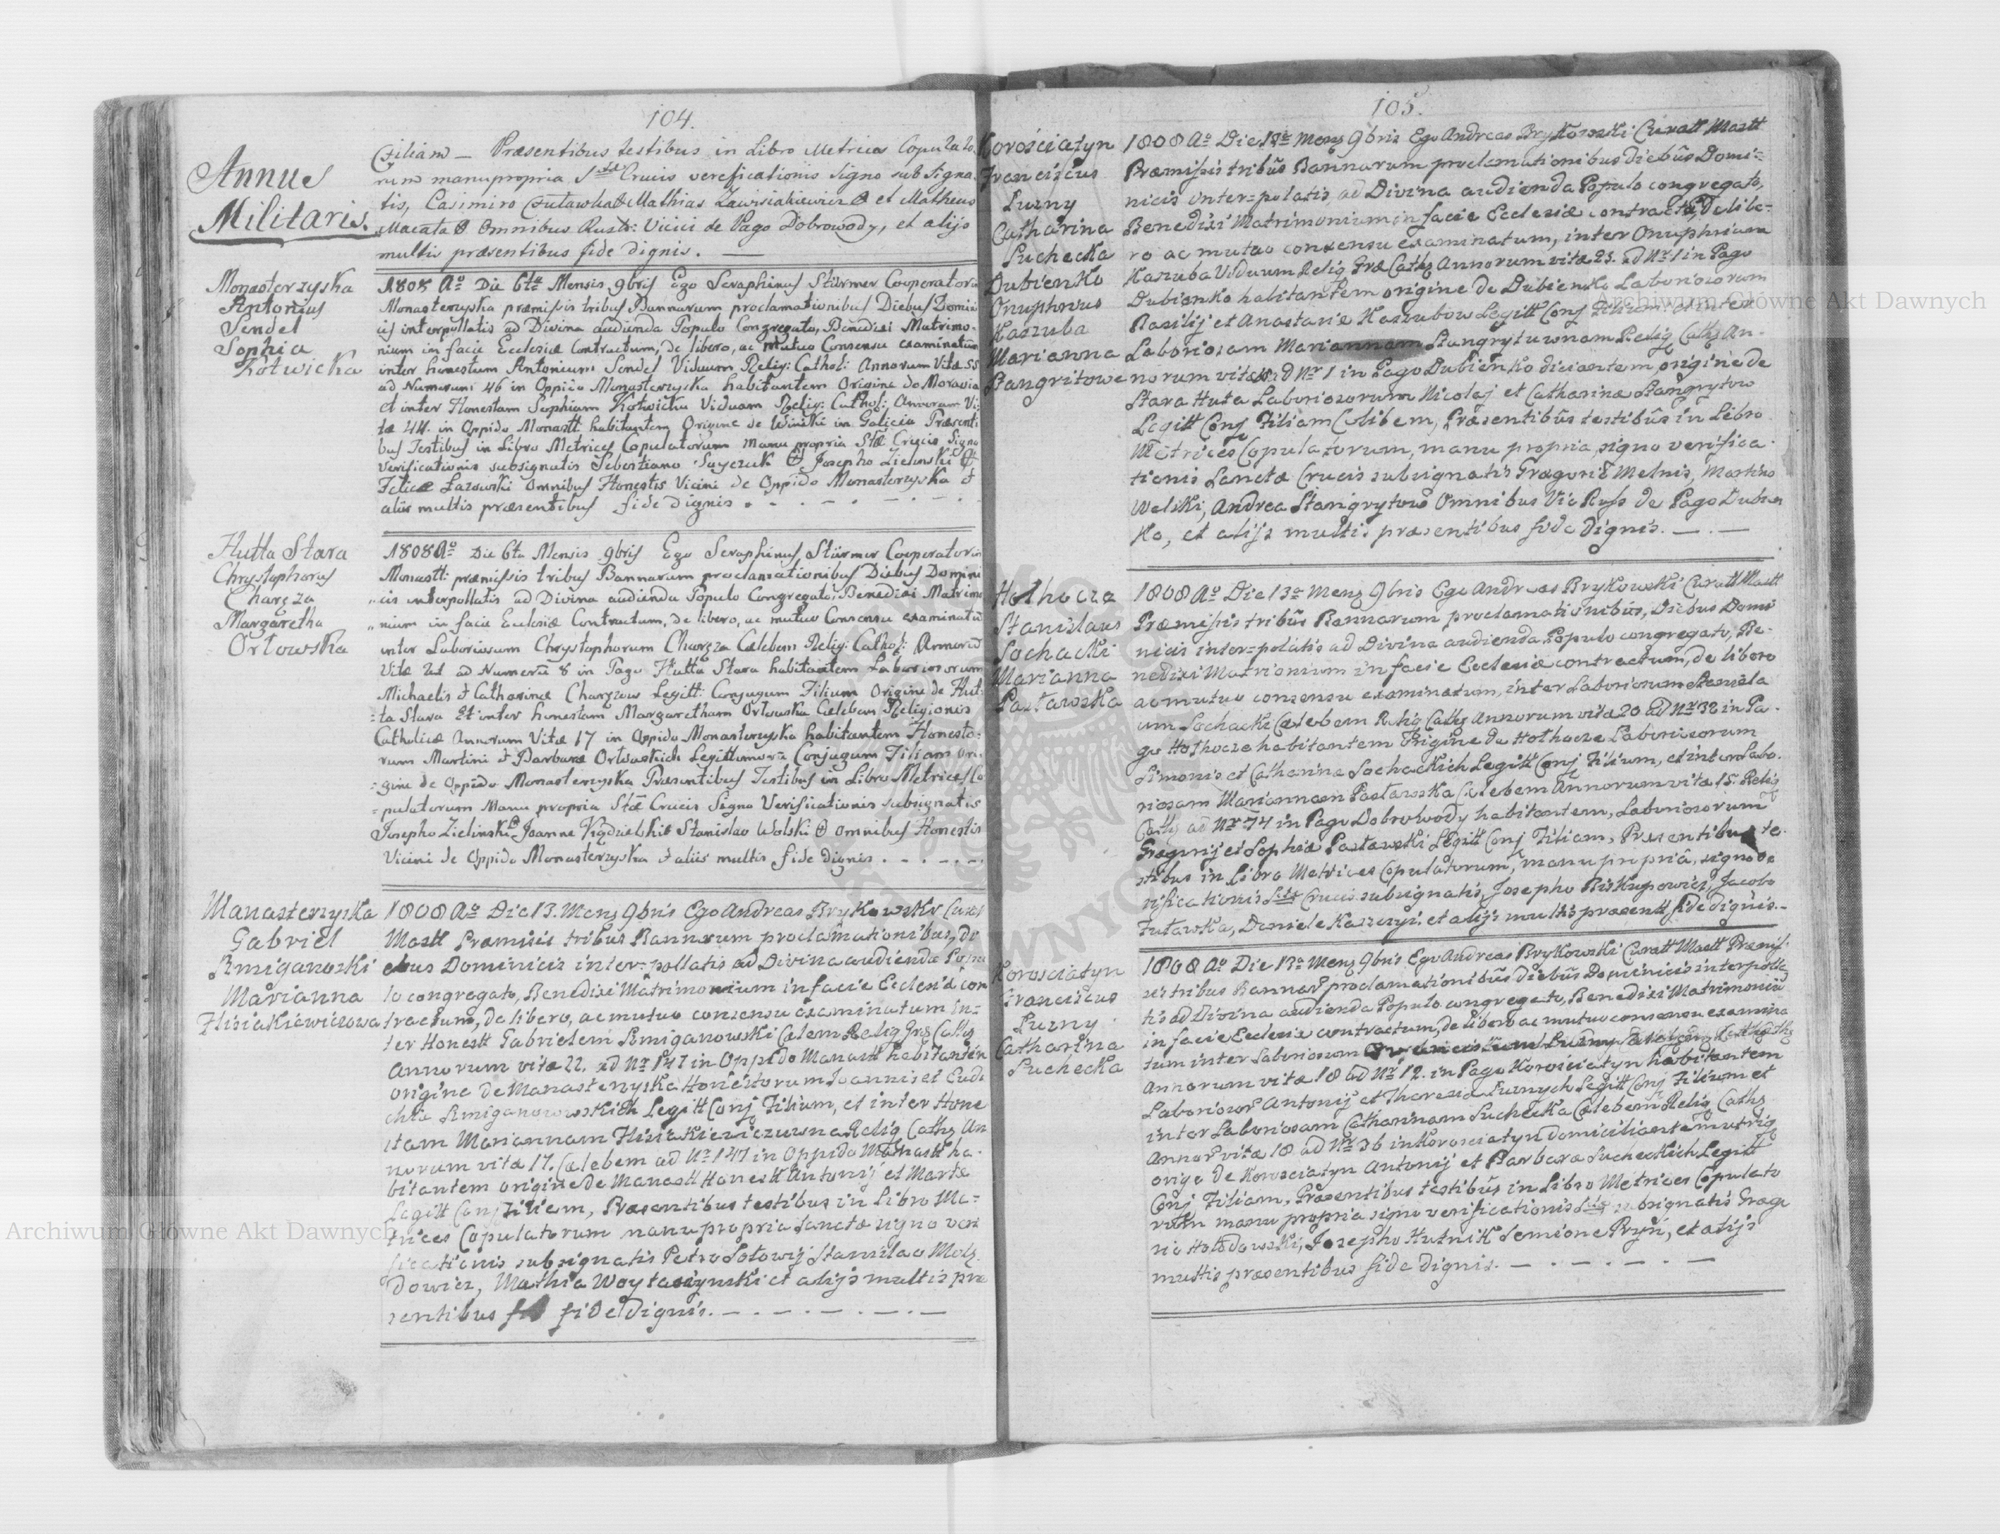 104.
Annus
Militaris.
Filiam — Præsentibus testibus in Libro Metrices Copulato
rum manupropria Stæ Crucis verificationis Signo subsigna
tis, Casimiro Mathias et Matheus
Macata Omnibus Rust: Vicici de Pago Dobrowody, et alijs
multis præsentibus fide dignis. —
Monasterzyska
Antonius
Sendel
Sophia
Kotwicka
1808 Ao Die 6ta Mensis 9bris Ego Seraphinus Stürmer Cooperator
Monasterzyska præmissis tribus Bannarum proclamationibus Diebus Domini
cis interpollatis ad Divina audienda Populo Congregato, Benedixi Matrimo-
nium in facie Ecclesiæ Contractum, de libero, ac mutuo Consensu examinatum
inter honestum Antonium Sendel Viduum Relig: Cathol: Annorum Vitæ 55
ad Numerum 46 in Oppido Monasterzyska habitantem Origine de Moravia
et inter Honestam Sophiam Kotwicka Viduam Relig: Cathol: Annorum Vi
tæ 44. in Oppido Monastt habitantem Origine de in Galicia Præsenti
bus Testibus in Libro Metrices Copulatorum manu propria Stæ Crucis Signo
Verificationis subsignatis Sebestiano Josepho Zielinski
Felice Lazowski Omnibus Honestis Vicini de Oppido Monasterzyska &
aliis multis præsentibus fide dignis.
Hutta Stara
Chrystophorus
Charęza
Margaretha
Orłowska
1808 Ao Die 6ta Mensis 9bris Ego Seraphinus Stürmer Cooperator
Monastt: præmissis tribus Bannarum proclamationibus Diebus Domini
cis interpollatis ad Divina audienda Populo Congregato, Benedixi Matrimo
nium in facie Ecclesiæ Contractum, de libero, ac mutuo Consensu examinatum
inter Laboriosum Chrystophorum Charęza Cælebem Relig: Cathol: Annorum
Vitæ 21 ad Numerum 8 in Pago Hutta Stara habitantem Laboriosorum
Michaelis & Catharinæ Charęzow Legitt: Conjugum Filium Origine de Hut-
ta Stara Et inter honestam Margaretham Orłowska Cælebem Religionis
Catholicæ Annorum Vitæ 17 in Oppido Monasterzyska habitantem Honesto-
rum Martini & Barbaræ Orłowskich Legittimorum Conjugum Filiam ori-
gine de Oppido Monasterzyska Præsentibus Testibus in Libro Metrices Co
pulatorum Manu propria Stæ Crucis Signo Verificationis subsignatis
Josepho Zielinski Joanne Stanislao Wolski omnibus Honestis
Vicini de Oppido Monasterzyska & aliis multis fide dignis.
Manasterzyska
Gabriel
Smiganowski
Marianna
Hisiakiewiczowa
1808 Ao Die 13. Mens 9bris Ego Andreas Brykowski Curatt
Mastt Præmisis tribus Bannarum proclamationibus, di
ebus Dominicis inter-pollatis ad Divina audienda Popu
lo congregato, Benedixi Matrimonium in facie Ecclesiæ con
tractum, de libero, ac mutuo consensu examinatum in-
ter Honestt Gabrielem Smiganowski Cælem Relig Græ Cath
Annorum vitæ 22. ad Nr 147 in Oppido Manastt habitantem
origine de Manasterzyska Honestorum Joannis et Eudo
chiæ Smiganowowskich Legitt Conj Filium, et inter Hone
stam Mariannam Hisiakiewiczuwna Relig Cath An
norum vitæ 17. Cælebem ad Nr 147 in Oppido Manastt ha-
bitantem origine de Manastt Honestt Antonij et Martæ
Legitt Conj Filiam, Præsentibus testibus in Libro Me-
trices Copulatorum manu propria Sanctæ signo veri
ficationis subsignatis Petro Sołowij Stanislao
Dowicz, Mathia Woytaszynski et alijs multis præ
sentibus fide Dignis.
105.
Korościatyn
Franciscus
Luzny
Catharina
Suchecka
Dubienko
Onuphrus
Kaszuba
Marianna
Stangritowe
1808 Ao Die 13te Mens 9bris Ego Andreas Brykowski Curatt Mastt
Præmisis tribus Bannarum proclamationibus diebus Domi-
nicis inter-polatis, ad Divina audienda Populo congregato,
Benedixi Matrimonium in facie Ecclesiæ contractu, De libe-
ro ac mutuo consensu examinatum, inter Onuphrium
Kaszuba Viduum Relig Græ Cath Annorum vitæ 25. ad Nr 1 in Pago
Dubienko habitantem origine de Dubienko Laboriosorum
Basilij et Anastasiæ Kaszubow Legitt Conj Filium. et inter
Laboriosam Mariannam Stangrytuwnam Relig Cath An-
norum vitæ ad Nr 1 in Pago Dubienko diciantem origine de
Stara Huta Laboriosorum Nicolaj et Catharinæ Stangrytow
Legitt Conj Filiam Cælibem, Præsentibus testibus in Libro
Metrices Copulatorum, manu propria, signo verifica-
tionis Sanctæ Crucis subsignatis Grægorio Melnis, Martino
Welski, Andrea Stangrytow Omnibus Vic Russ de Pago Dubien
ko, et alijs multis præsentibus fide dignis. — . —
Hołhocza
Stanislaus
Sochacki
Marianna
Pasławska
1808 Ao Die 13a Mens 9bris Ego Andreas Brykowski Curatt Mastt
Præmisis tribus Bannarum proclamationibus, Diebus Domi
nicis inter-polatis ad Divina audienda Populo congregato, Be-
nedixi Matrionium in facie Ecclesiæ contractum, de libero
ac mutuo consensu examinatum, inter Laboriosum Stanisla
um Sochacki Cælebem Relig Cath Annorum vitæ 20 ad Nr 32 in Pa-
go Hołhocze habitantem Origine de Hołhocze Laboriosorum
Simonis et Catharina Sochackich Legitt Conj Filium, et inter Labo-
riosam Mariannam Pasławska Cælebem Annorum vitæ 15. Relig
Cath ad Nr 74 in Pago Dobrowody habitantem, Laboriosorum
Grægorij et Sophiæ Pasławski Legitt Conj Filiam, Præsentibus te-
stibus in Libro Metrices Copulatorum, manu propriâ, signo ve
rificationis Stæ Crucis subsignatis, Josepho Biskupowicz, Jacobo
Tuławska, Daniele Kaszczyj et alijs multis præsentt fide dignis.
Korosciatyn
Franciscus
Luzny
Catharina
Suchecka
1808 Ao Die 13a Mens 9bris Ego Andreas Brykowski Curatt Mastt Præmis-
sis tribus Bannar proclamationibus diebus Dominicis interpolla
tis ad Divina audienda Populo congregato, Benedixi Matrimoniu
in facie Ecclesiæ contractum, de libero ac mutuo consensu examina
tum inter Laboriosum Luzny
Annorum vitæ 18 ad Nr 12. in Pago Korosciatyn habitantem
Laborioso Antonij et Theresiæ Luznych Legitt Conj Filium et
inter Laboriosam Catharinam Suchecka Cælebem Relig Cath
Annor vitæ 18 ad Nr 36 in Korosciatyn domiciliantem utriq
orige de Korosciatyn Antonij et Barbara Sucheckich Legitt
Conj Filiam. Præsentibus testibus in Libro Metrices Copulato
rum manu propria signo verificationis Stæ subsignatis Grego
rio Hołodowski, Josepho Hutnik Semione Bryń, et alijs
multis præsentibus fide dignis.
Archiwum Główne Akt Dawnych
Archiwum Główne Akt Dawnych